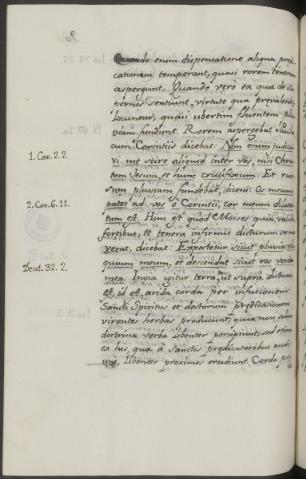 Quando enim dispensatione aliqua præ-
cationem temperant, quasi rorem terram
aspergunt. Quando vero ea qua de su-
pernis sentiunt, virtute qua prævalent,
loquuntur, quasi ubertim fluentem plu-
viam fundunt. Rorem aspergebat Paulus
1. Cor. 2. 2.
cum Corintiis dicebat. Non enim judica-
vi me scire aliquid inter vos, nisi Chris-
tum Iesum, et hunc crucifixum. Et rur-
sum pluviam fundebat, dicens: Os meum
2. Cor. 6. 11.
patet ad vos ò Corintii, cor meum dilata-
tum est. Hinc est quod Moises quia valida
fortibus, et tenera infirmis dicturum se no-
verat, dicebat. Expectetur sicut pluvia elo-
Deut. 32. 2.
quium meum, et descendat sicut ros verba
mea. Invia igitur terra, ut supra dictum
est, id est, arida corda per infusionem
Sancti Spiritus et doctorum prædicationem
virentes herbas producunt, quia non solum
doctrinæ verba libenter percipiunt, sed etiam
ex his, quæ à sanctis prædicatoribus audi-
unt, libenter proximos erudiunt. Corda pr